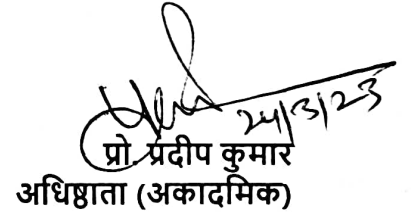 24/3/23
प्रो. प्रदीप कुमार
अधिष्ठाता (अकादमिक)